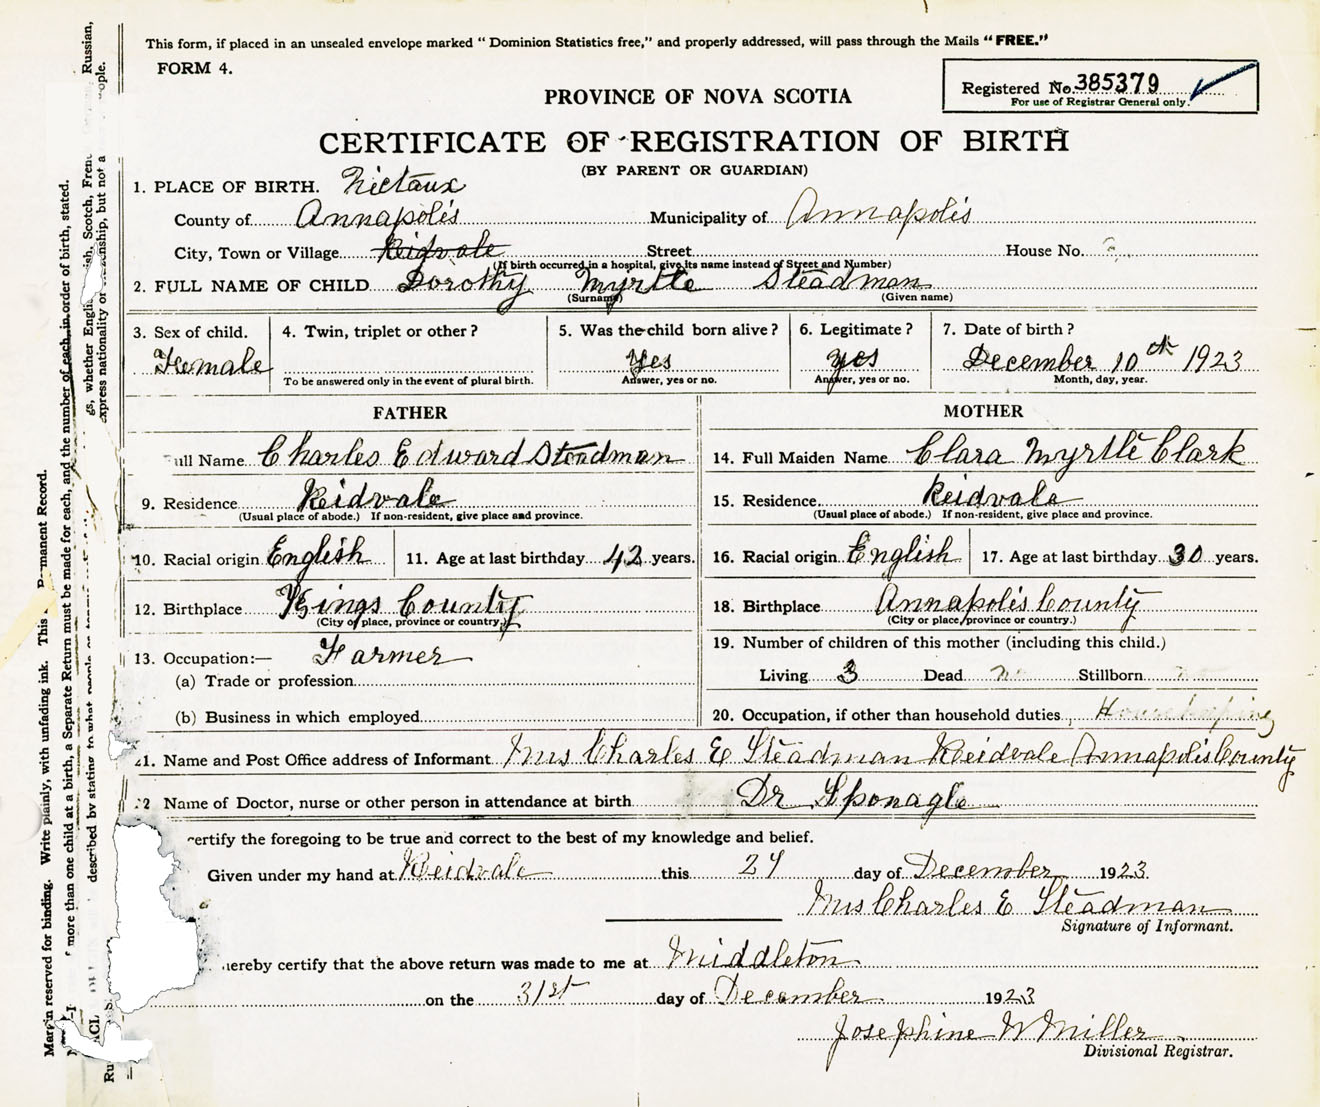 This form, if placed in an unsealed envelope marked " Dominion Statistics free," and properly addressed, will pass through the Mails " FREE."
FORM 4.
Registered No. 385379
For use of Registrar General only.
PROVINCE OF NOVA SCOTIA
CERTIFICATE OF REGISTRATION OF BIRTH
(BY PARENT OR GUARDIAN)
1. PLACE OF BIRTH. Nictaux
County of Annapolis Municipality of Annapolis
City, Town or Village Reidvale Street House No.
(If birth occurred in a hospital, give its name instead of Street and Number)
2. FULL NAME OF CHILD Dorothy Myrtle Steadman
(Surname) (Given name)
3. Sex of child. 4. Twin, triplet or other? 5. Was the child born alive? 6. Legitimate? 7. Date of birth?
Female Yes yes December 10th 1923
To be answered only in the event of plural birth. Answer, yes or no. Answer, yes or no. Month, day, year.
FATHER MOTHER
ull Name Charles Edward Steadman 14. Full Maiden Name Clara Myrtle Clark
9. Residence Reidvale 15. Residence Reidvale
(Usual place of abode.) If non-resident, give place and province. (Usual place of abode.) If non-resident, give place and province.
10. Racial origin English 11. Age at last birthday 42 years. 16. Racial origin English 17. Age at last birthday 30 years.
12. Birthplace Kings County 18. Birthplace Annapolis County
(City or place, province or country.) (City or place, province or country.)
13. Occupation:— Farmer 19. Number of children of this mother (including this child.)
(a) Trade or profession Living 3 Dead no Stillborn no
(b) Business in which employed 20. Occupation, if other than household duties, Housekeeping
21. Name and Post Office address of Informant Mrs Charles E Steadman Reidvale Annapolis County
22 Name of Doctor, nurse or other person in attendance at birth Dr Sponagle
certify the foregoing to be true and correct to the best of my knowledge and belief.
Given under my hand at Reidvale this 27 day of December 1923.
Mrs Charles E Steadman
Signature of Informant.
hereby certify that the above return was made to me at Middleton
on the 31st day of December 1923
Josephine W Miller
Divisional Registrar.
Margin reserved for binding. Write plainly, with unfading ink. This Permanent Record.
more than one child at a birth, a Separate Return must be made for each, and the number of each, in order of birth, stated.
described by stating to what people
whether English, Irish, Scotch, French, Russian,
express nationality or citizenship, but not a people.